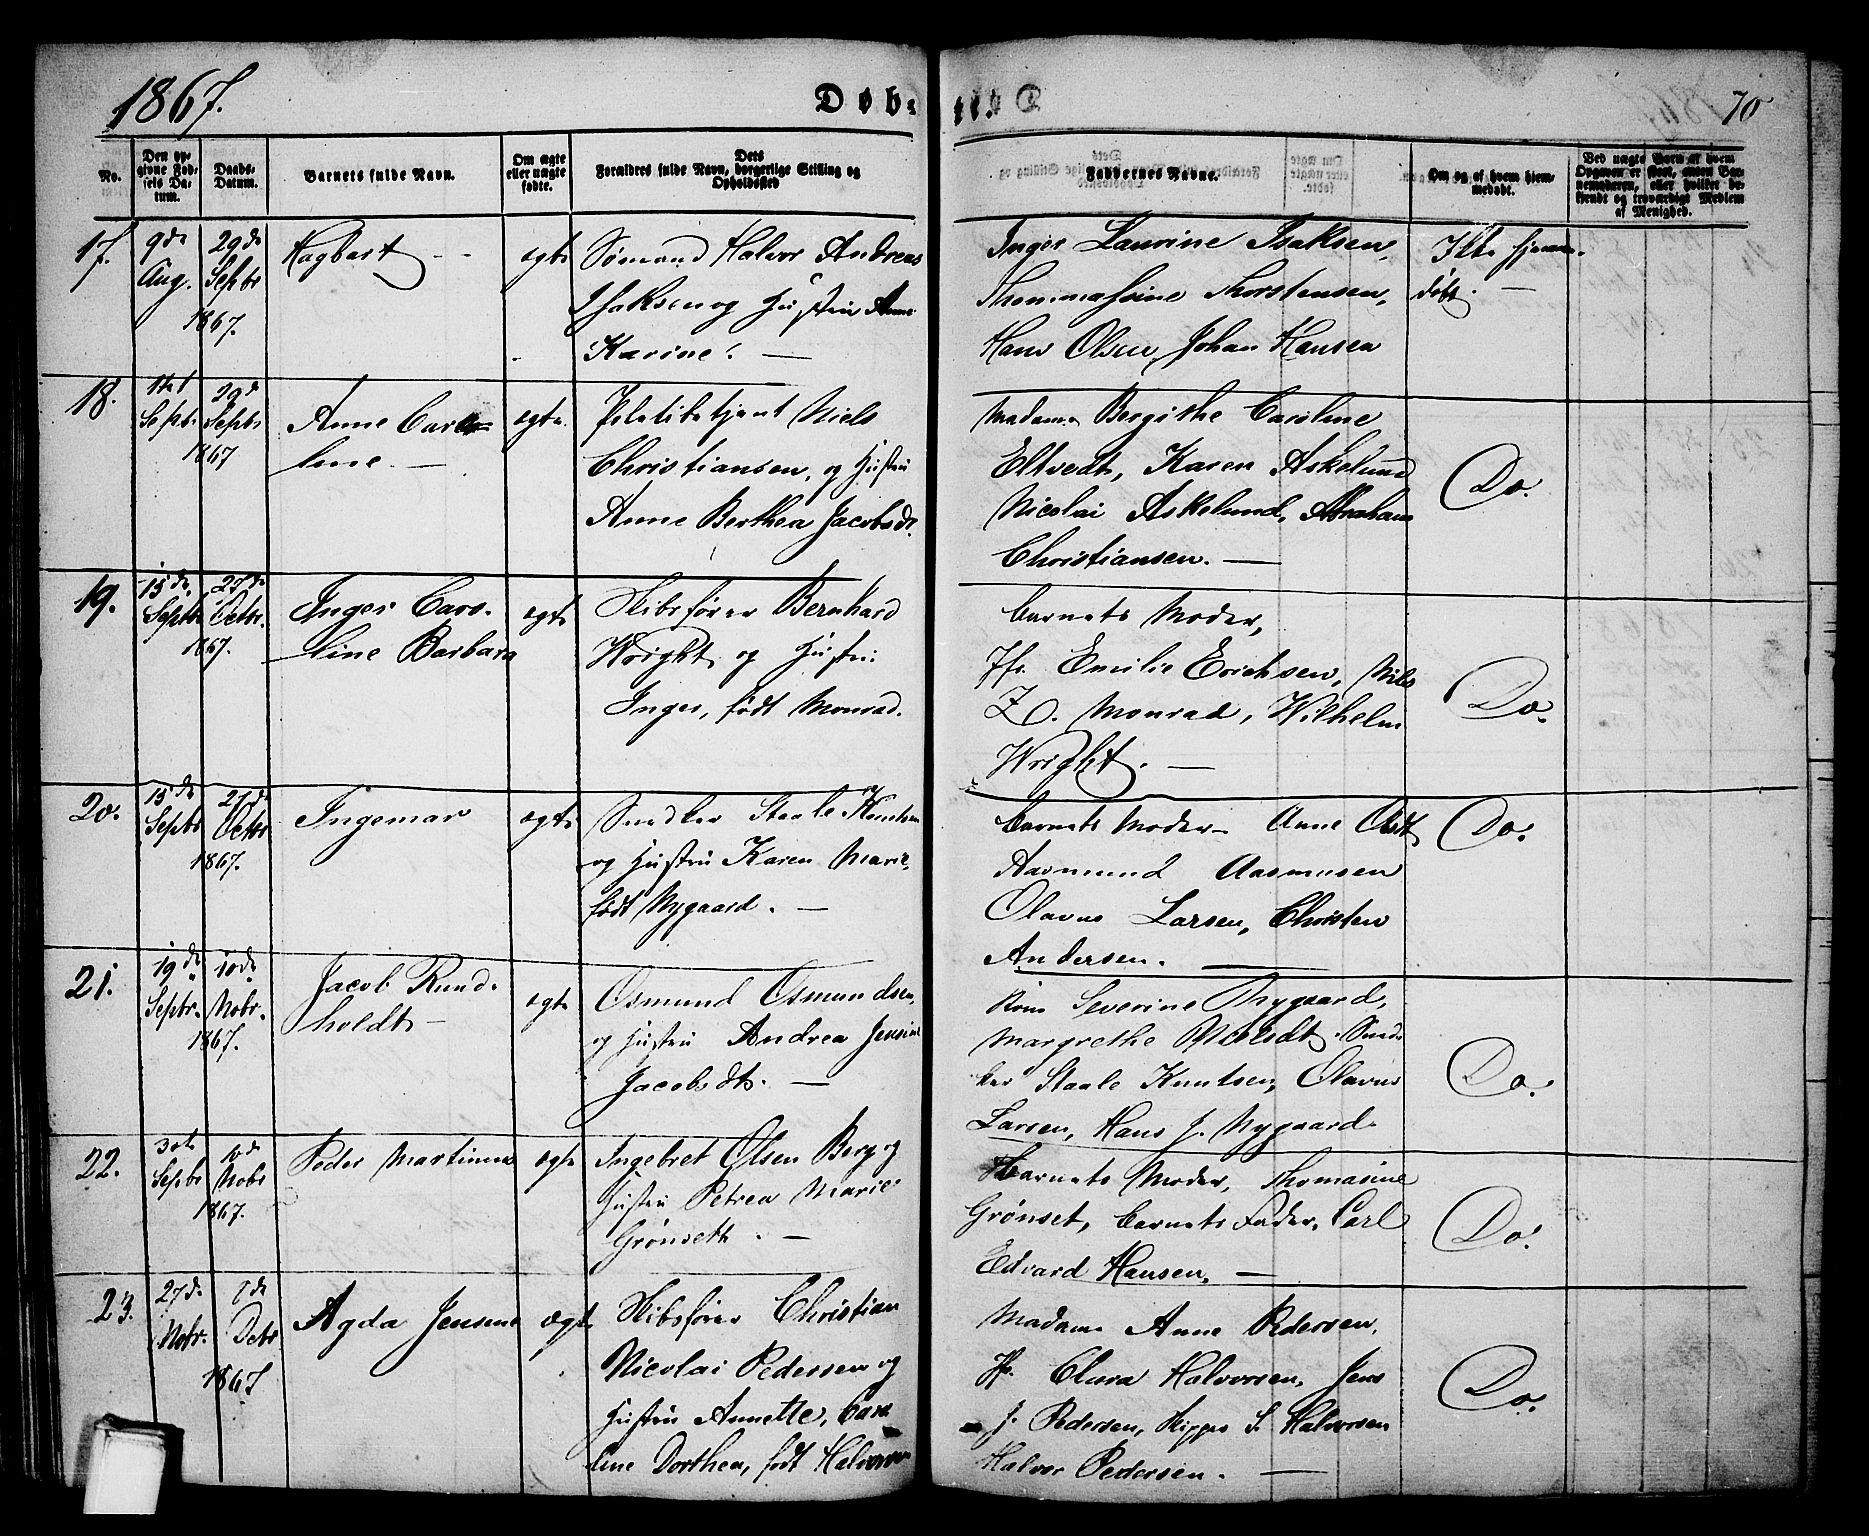 1867.
Døb
70
No.
Den opgivne Fødsels Datum.
Daabs-Datum.
Barnets fulde Navn.
Om ægte eller uægte fødte.
Dets Forældres fulde Navn, borgerlige Stilling og Opholdssted
Faddernes Navne.
Om og af hvem hjemmedøbt.
Ved uægte Børn af hvem Opgaven er skeet, enten Barnemoderen, eller hvilket bekjendt og troværdigt Medlem af Menighed.
17.
9de Aug.
29de Septbr
1867.
Hagbart
ægte
Sømand Halvor Andreas
Isaksen og Hustru Anne
Karine. —
Inger Laurine Isaksen,
Thommassine Thorstensen,
Hans Olsen, Johan Hansen
Ikke hjemme-
døbt. —
18.
1ste Septbr
29de Septbr
1867
Anne Caro-
line. —
ægte.
Politibetjent Niels
Christiansen, og Hustru
Anne Berthea Jacobsdt.
Madame Bergithe Caroline
Eltvedt, Karen Askelund
Nicolai Askelund, Abraham
Christiansen. —
Do.
19.
15de Septbr
27de Octbr.
1867.
Inger Caro-
line Barbara
ægte
Skibsfører Bernhard
Wright og Hustru
Inger, født Monrad.
Barnets Moder,
Jfr. Emilie Erichsen, Nils
Z. Monrad, Wilhelm
Wright. —
Do.
20.
15de Septbr
27de Octbr
1867.
Ingemar
ægte
Snedker Staale Knutsen
og Hustru Karen Marie,
født Nygaard. —
Barnets Moder, Anne
Aasmund Aasmusen
Olavus Larsen, Christen
Andersen. —
Do.
21.
19de Septbr.
10de Nobr.
1867.
Jacob Rund-
holdt —
ægte
Osmund Osmundsen,
og Hustru Andrea Jensine
Jacobsdt. —
Kone Severine Nygaard,
Margrethe Sned-
ker Staale Knutsen, Olavus
Larsen, Hans J. Nygaard.
Do.
22.
30te Septbr
10de Nobr
1867.
Peder Martinus
ægte
Ingebret Olsen Berg og
Hustru Petrea Marie
Grønseth. —
Barnets Moder, Thomasine
Grønset, Barnets Fader, Carl
Edvard Hansen. —
Do.
23.
27de Nobr.
Debr
1867
Agda Jensine
ægte
Skibsfører Christian
Nicolai Pedersen og
Hustru Annette, Caro
line Dorthea, født Halvorsen
Madame Anne Pedersen,
Jfr. Clara Halvorsen, Jens
J. Pedersen, S. Halvorsen
Halvor Pedersen. —
Do.